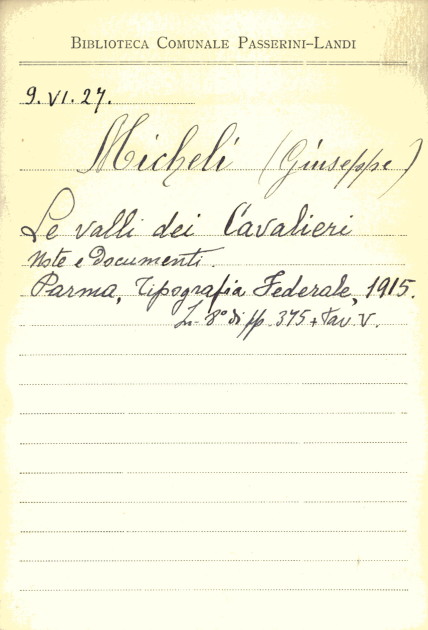 BIBLIOTECA COMUNALE PASSERINI–LANDI
9. VI. 27.
Micheli (Giuseppe)
Le valli dei Cavalieri
Note e Documenti.
Parma, Tipografia Federale, 1915.
In 8° di pp. 375 + tav. V.